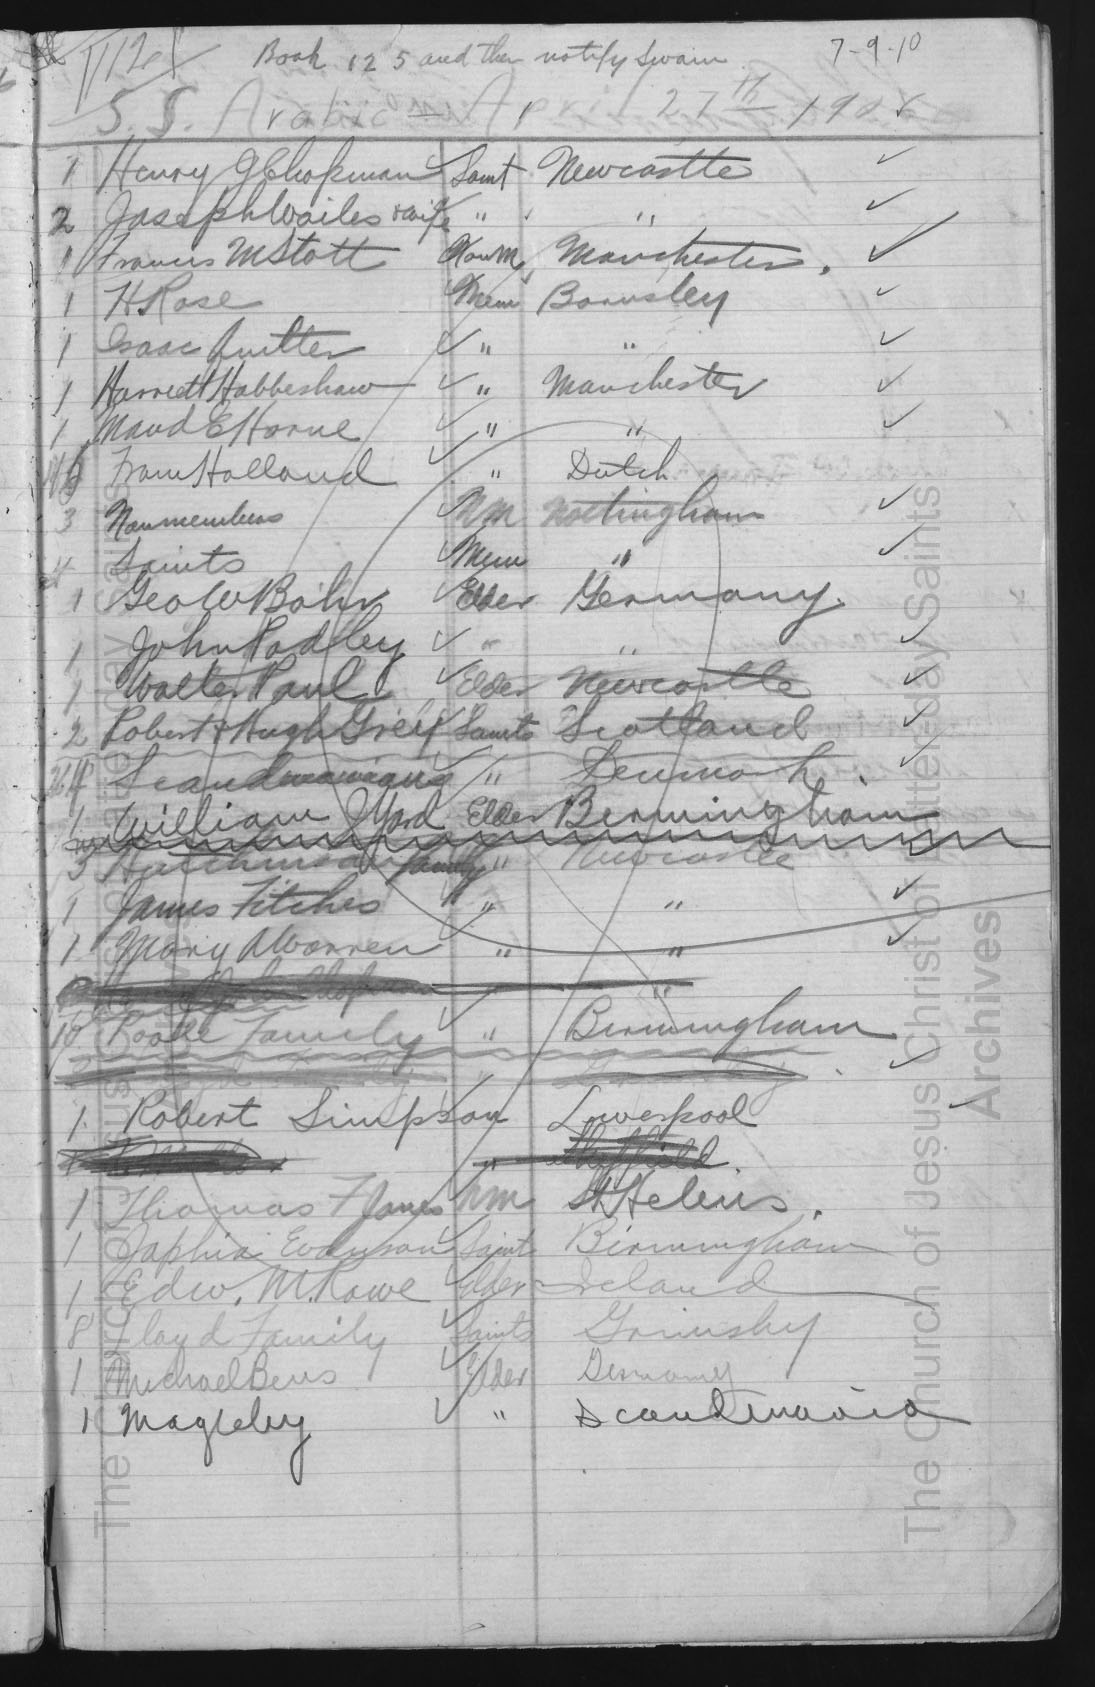 Book 125 and then notify Swain 7-9-10
S.S. Arabic April 27th 1908
1 Henry G Chapman Saint Newcastle
2 Joseph Wailes & wife " "
1 Francis M Stott Non M Manchester.
1 H Rose Mem Barnsley
1 Isaac Quilter " "
1 Harriett Habbeshaw " Manchester
1 Maud E Horne " "
From Holland " Dutch
3 Nonmembers NM Nottingham
4 Saints Mem "
1 Geo W Bohn Elder Germany.
1 John Padley " "
1 Walter Paul Elder Newcastle
2 Robert & Hugh Greif Saints Scotland
Scandinavians " Denmark.
1 William J Yard Elder Birmingham
3 Hutchinson family " Newcastle
1 James Fitches " "
1 Mary A Warren " "
Chapman "
10 Poole Family " Birmingham
1 Robert Simpson Liverpool
" Sheffield.
1 Thomas F Jones NM St Helens.
1 Japhia Evanson Saint Birmingham
1 Edw. M. Rowe Elder Ireland
8 Lloyd Family Saints Grimsby
1 Michael Beus Elder Germany
1 Magleby " Scandinavia
The Church of Jesus Christ of Latter-day Saints
The Church of Jesus Christ of Latter-day Saints
Archives